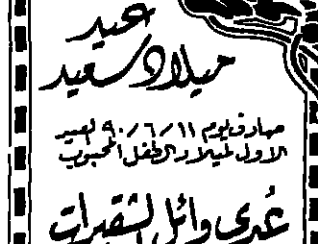 عيد
ميلاد سعيد
صادف يوم ٩٠/٦/١١ العيد
الاول لميلاد الطفل المحبوب
عُدي وائل الشقيرات